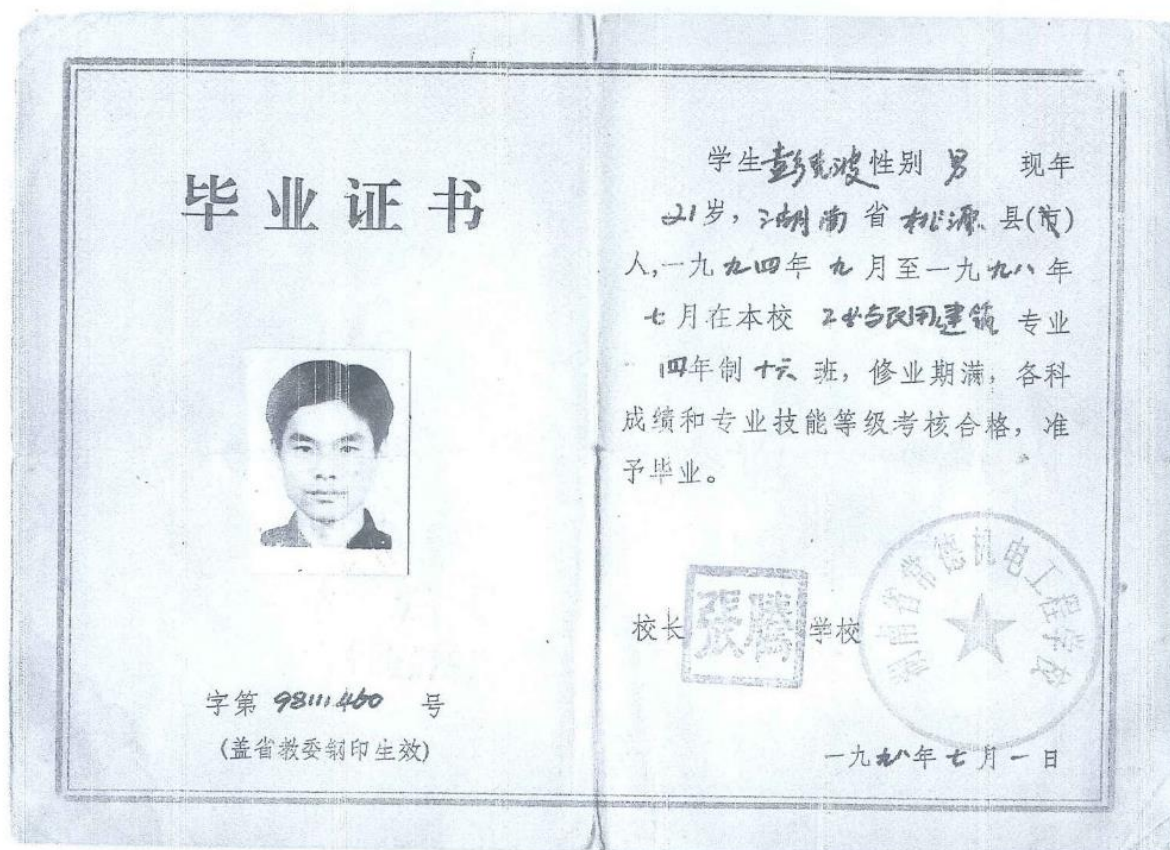 毕业证书
字第 98111460 号
(盖省教委钢印生效)
学生彭克波性别 男 现年
21岁，湖南省桃源县(市)
人,一九九四年九月至一九九八年
七月在本校 工业与民用建筑 专业
四年制十六班，修业期满，各科
成绩和专业技能等级考核合格，准
予毕业。
校长 張騰 学校
湖南省常德机电工程学校
一九九八年七月一日